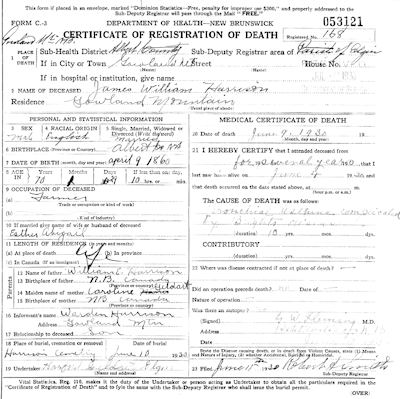 If placed in an envelope, marked "Dominion Statistics—Free, penalty for improper use $300," and properly addressed to the
Sub-Deputy Registrar will pass through the Mail "FREE."
FORM C.-3 DEPARTMENT OF HEALTH—NEW BRUNSWICK 053121
CERTIFICATE OF REGISTRATION OF DEATH Registered No. 168
1 PLACE OF DEATH
Sub-Health District Albert County Sub-Deputy Registrar area of Parish of Elgin
If in City or Town Street House No.
If in hospital or institution, give name
2 NAME OF DECEASED James William Harrison
Residence Gowland Mountain
PERSONAL AND STATISTICAL INFORMATION
3 SEX Male 4 RACIAL ORIGIN English 5 Single, Married, Widowed or Divorced (Write the word) married
6 BIRTHPLACE (Province or Country) Albert Co NB
7 DATE OF BIRTH (month, day and year) April 9 1860
8 AGE IN Years 70 Months 1 Days If less than one day, hrs. or min.
9 OCCUPATION OF DECEASED
Farmer
Trade or occupation or kind of work)
(Kind of industry)
10 If married give name of wife or husband of deceased
Esther Abigail
11 LENGTH OF RESIDENCE (in years and months)
(a) At place of death Life (b) in province
(c) In Canada (if an immigrant)
Parents
12 Name of father William E Harrison
13 Birthplace of father N.B. Canada
14 Maiden name of mother Caroline Geldart
15 Birthplace of mother NB Canada
16 Informant's name Warden Harrison
Address Gowland Mtn
17 Relationship to deceased Son
18 Place of burial, cremation or removal Date of burial
Harrison Cemetery June 10 1930
19 Undertaker
Address Elgin
MEDICAL CERTIFICATE OF DEATH
20 DATE OF DEATH June 9, 1930
(month, day and year)
21 I HEREBY CERTIFY that I attended deceased
from for several years
last on June 1930 and that
death occurred on the date stated above, at m.
The CAUSE OF DEATH was as follows:
Bronchial Asthma complicated
by Brights disease
duration 10 yrs. mos. days
CONTRIBUTORY
duration yrs. mos. days
22 Where was disease contracted if not at place of death?
Did an operation precede death? no Date
Nature of operation
Was there an autopsy?
Signed M.D.
Address
State the Disease causing death, or in death from Violent Causes, state (1) Means and Nature of Injury, (2) whether Accidental, Suicidal or Homicidal.
23 Filed June 11th 1930
Vital Statistics, Reg. 216, makes it the duty of the Undertaker or person acting as Undertaker to obtain all the particulars required in the
"Certificate of Registration of Death" and to fyle the same with the Sub-Deputy Registrar who shall issue the burial permit.